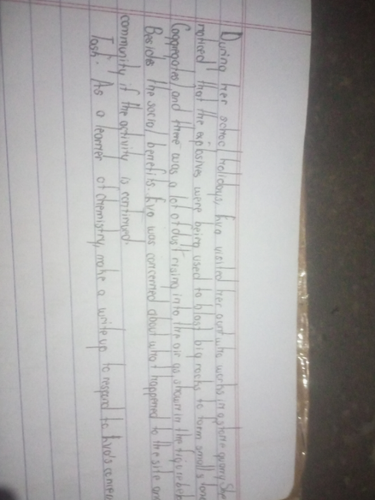 During her school holidays, Eva visited her aunt who works in a stone quarry. She
noticed that the explosives were being used to blast big rocks to form small stone
(aggregates) and there was a lot of dust rising into the air as shown in the figure
Besides the social benefits, Eva was concerned about what happened to the site and
community if the activity is continued.
Task: As a learner of chemistry, make a write up to respond to Eva's